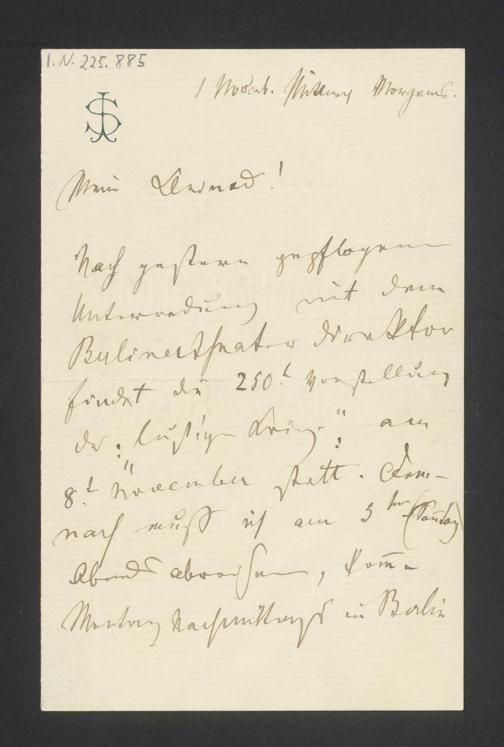 I.N. 225.885
1 Novemb. Mittwoch Morgens.
JS
Mein
Nach gestern gepflogener
Unterredung mit dem
Berlinertheater direktor
findet die 250t. Vorstellung
des "lustigen Krieg" am
8t. November statt. Dem-
nach muß ich am 5ten (Sonntag)
Abends abreisen, komme
Montag Nachmittags in Berlin